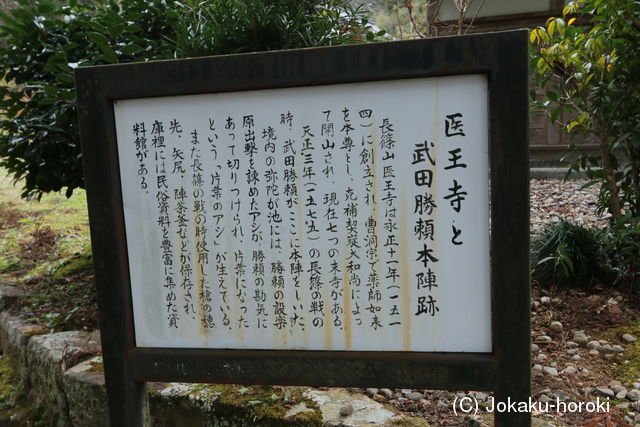 医王寺と
武田勝頼本陣跡
長篠山医王寺は永正十一年（一五一
四）に創立され、曹洞宗で薬師如来
を本尊とし、克補契嶷大和尚によっ
て開山され、現在七つの末寺がある。
天正三年（一五七五）の長篠の戦の
時、武田勝頼がここに本陣をしいた。
境内の弥陀が池には、勝頼の設楽
原出撃を諫めたアシが、勝頼の勘気に
あって切りつけられ、片葉になった
という、「片葉のアシ」が生えている。
また長篠の戦の時使用した槍の穂
先、矢尻、陣茶釜などが保存され、
庫裡には民俗資料を豊富に集めた資
料館がある。
(C) Jokaku-horoki